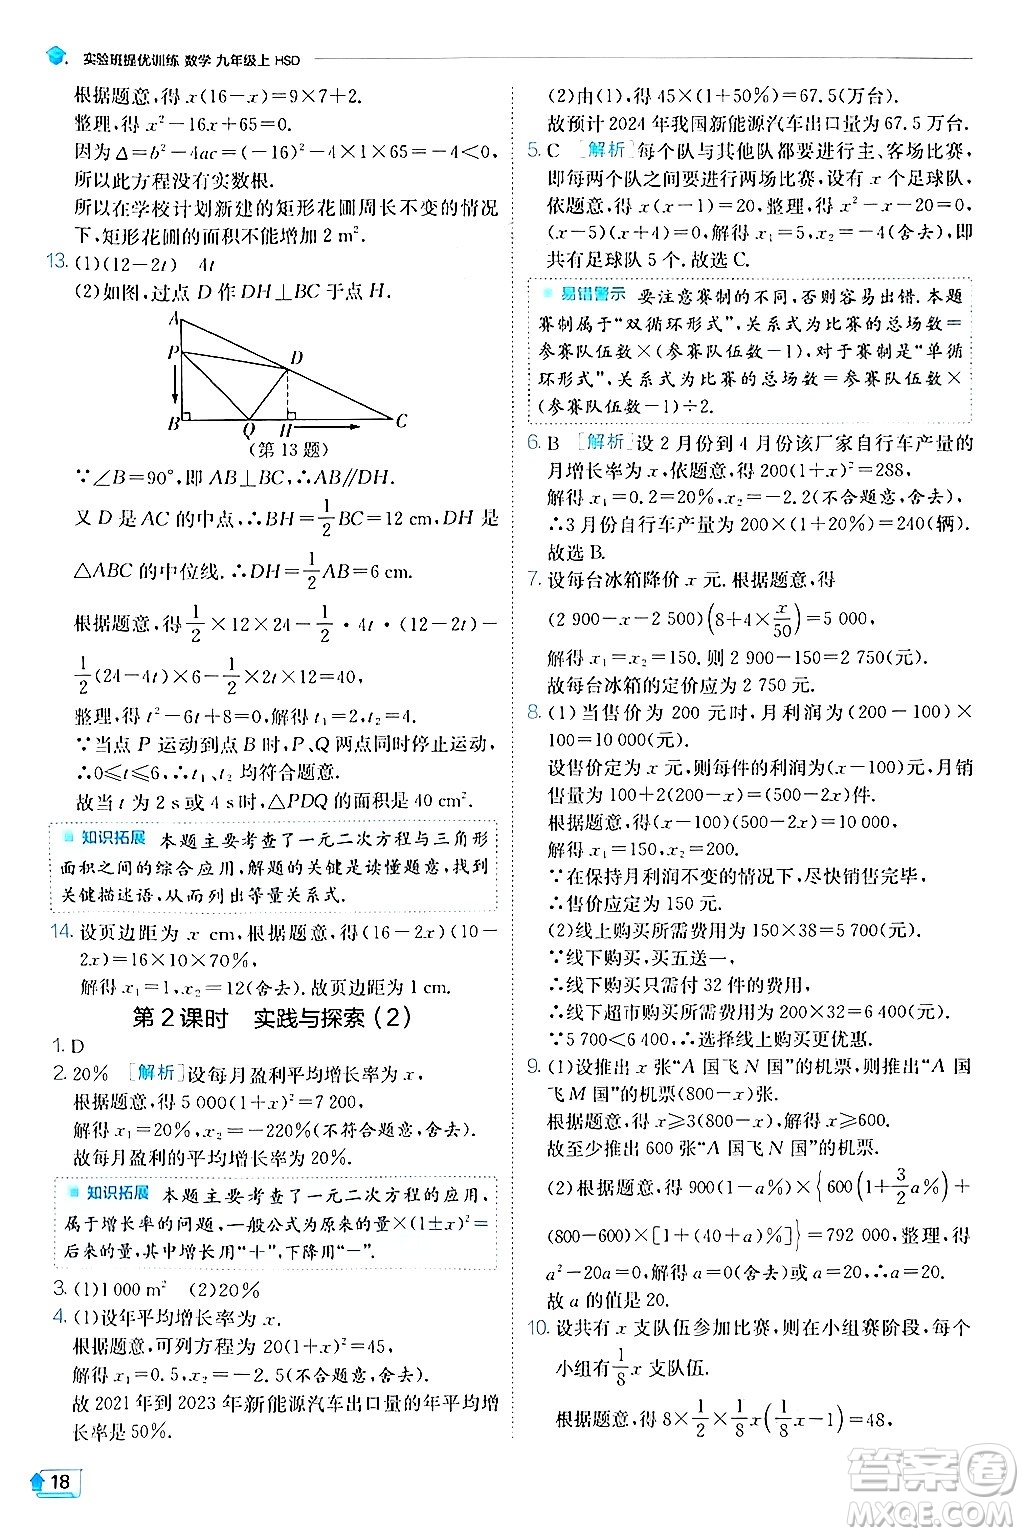 实验班提优训练 数学 九年级上 HSD
根据题意,得 x(16-x)=9×7+2.
整理,得 x²-16x+65=0.
因为Δ=b²-4ac=(-16)²-4×1×65=-4<0,
所以此方程没有实数根.
所以在学校计划新建的矩形花圃周长不变的情况
下,矩形花圃的面积不能增加 2 m².
13. (1)(12-2t)　4t
(2)如图,过点 D 作 DH⊥BC 于点 H.
A
P
D
B
Q
H
C
(第 13 题)
∵∠B=90°,即 AB⊥BC,∴AB∥DH.
又 D 是 AC 的中点,∴BH=1/2BC=12 cm,DH 是
△ABC 的中位线.∴DH=1/2AB=6 cm.
根据题意,得1/2×12×24-1/2·4t·(12-2t)-
1/2(24-4t)×6-1/2×2t×12=40,
整理,得 t²-6t+8=0,解得 t₁=2,t₂=4.
∵当点 P 运动到点 B 时,P、Q 两点同时停止运动,
∴0≤t≤6,∴t₁、t₂ 均符合题意.
故当 t 为 2 s或 4 s时,△PDQ 的面积是 40 cm².
知识拓展 本题主要考查了一元二次方程与三角形
面积之间的综合应用,解题的关键是读懂题意,找到
关键描述语,从而列出等量关系式.
14. 设页边距为 x cm,根据题意,得(16-2x)(10-
2x)=16×10×70%,
解得 x₁=1,x₂=12(舍去).故页边距为 1 cm.
第 2 课时　实践与探索(2)
1. D
2. 20% [解析]设每月盈利平均增长率为 x,
根据题意,得 5 000(1+x)²=7 200,
解得 x₁=20%,x₂=-220%(不符合题意,舍去).
故每月盈利的平均增长率为 20%.
知识拓展 本题主要考查了一元二次方程的应用,
属于增长率的问题,一般公式为原来的量×(1±x)²=
后来的量,其中增长用“+”,下降用“-”.
3. (1)1 000 m²　(2)20%
4. (1)设年平均增长率为 x.
根据题意,可列方程为 20(1+x)²=45,
解得 x₁=0.5,x₂=-2.5(不符合题意,舍去).
故 2021 年到 2023 年新能源汽车出口量的年平均增
长率是 50%.
18
(2)由(1),得 45×(1+50%)=67.5(万台).
故预计 2024 年我国新能源汽车出口量为 67.5 万台.
5. C [解析]每个队与其他队都要进行主、客场比赛,
即每两个队之间要进行两场比赛,设有 x 个足球队,
依题意,得 x(x-1)=20,整理,得 x²-x-20=0,
(x-5)(x+4)=0,解得 x₁=5,x₂=-4(舍去),即
共有足球队 5 个.故选 C.
易错警示 要注意赛制的不同,否则容易出错.本题
赛制属于“双循环形式”,关系式为比赛的总场数=
参赛队伍数×(参赛队伍数-1),对于赛制是“单循
环形式”,关系式为比赛的总场数=参赛队伍数×
(参赛队伍数-1)÷2.
6. B [解析]设 2 月份到 4 月份该厂家自行车产量的
月增长率为 x,依题意,得 200(1+x)²=288,
解得 x₁=0.2=20%,x₂=-2.2(不合题意,舍去),
∴3 月份自行车产量为 200×(1+20%)=240(辆).
故选 B.
7. 设每台冰箱降价 x 元.根据题意,得
(2 900-x-2 500)(8+4×x/50)=5 000,
解得 x₁=x₂=150.则 2 900-150=2 750(元).
故每台冰箱的定价应为 2 750 元.
8. (1)当售价为 200 元时,月利润为(200-100)×
100=10 000(元).
设售价定为 x 元,则每件的利润为(x-100)元,月销
售量为 100+2(200-x)=(500-2x)件.
根据题意,得(x-100)(500-2x)=10 000,
解得 x₁=150,x₂=200.
∵在保持月利润不变的情况下,尽快销售完毕,
∴售价应定为 150 元.
(2)线上购买所需费用为 150×38=5 700(元).
∵线下购买,买五送一,
∴线下购买只需付 32 件的费用.
∴线下超市购买所需费用为 200×32=6 400(元).
∵5 700<6 400,∴选择线上购买更优惠.
9. (1)设推出 x 张“A 国飞 N 国”的机票,则推出“A 国
飞 M 国”的机票(800-x)张.
根据题意,得 x≥3(800-x),解得 x≥600.
故至少推出 600 张“A 国飞 N 国”的机票.
(2)根据题意,得 900(1-a%)×{600(1+3/2a%)+
(800-600)×[1+(a+10)%]}=792 000,整理,得
a²-20a=0,解得 a=0(舍去)或 a=20,∴a=20.
故 a 的值是 20.
10. 设共有 x 支队伍参加比赛,则在小组赛阶段,每个
小组有1/8x 支队伍.
根据题意,得 8×1/2×1/8x(1/8x-1)=48,
答案圈
MXQE.COM